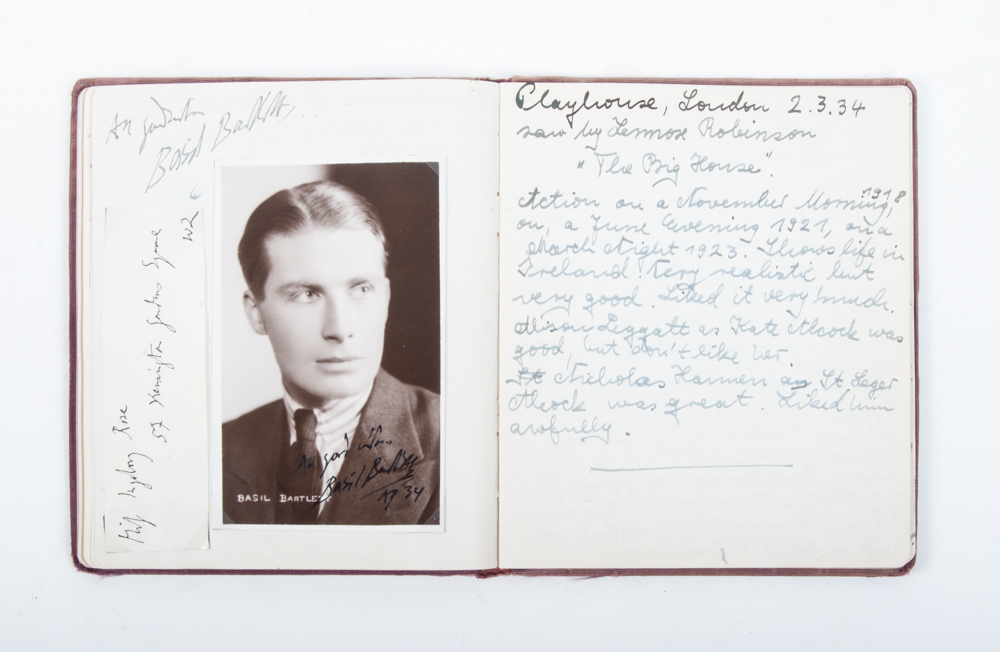 All good wishes
Basil Bartlett
Miss Ingeborg Rose
57 Kensington Gardens Square
W2
BASIL BARTLETT
All good wishes
Basil Bartlett
'34
Playhouse, London 2.3.34
saw by Lennox Robinson
"The Big House".
Action on a November Morning, 1918
on, a June Evening 1921, on a
March Night 1923. Shows life in
Ireland very realistic but
very good. Liked it very much.
Alison Leggatt as Kate Alcock was
good, but don't like her.
St Nicholas Hannen as St Leger
Alcock was great. Liked him
awfully.